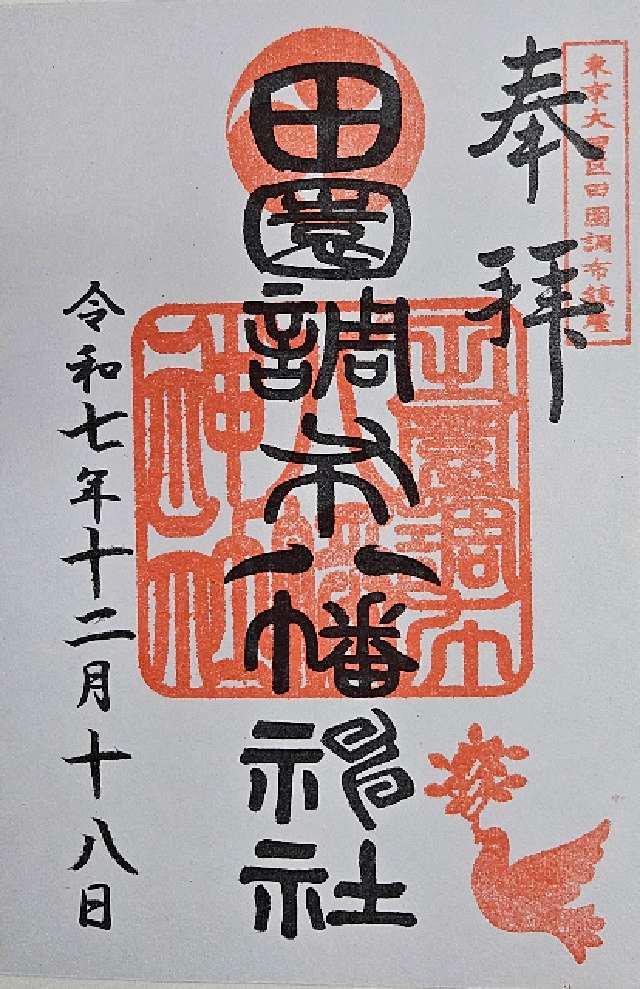 東京大田区田園調布鎮座
奉拝
田園調布八幡神社
田園調布八幡神社
令和七年十二月十八日